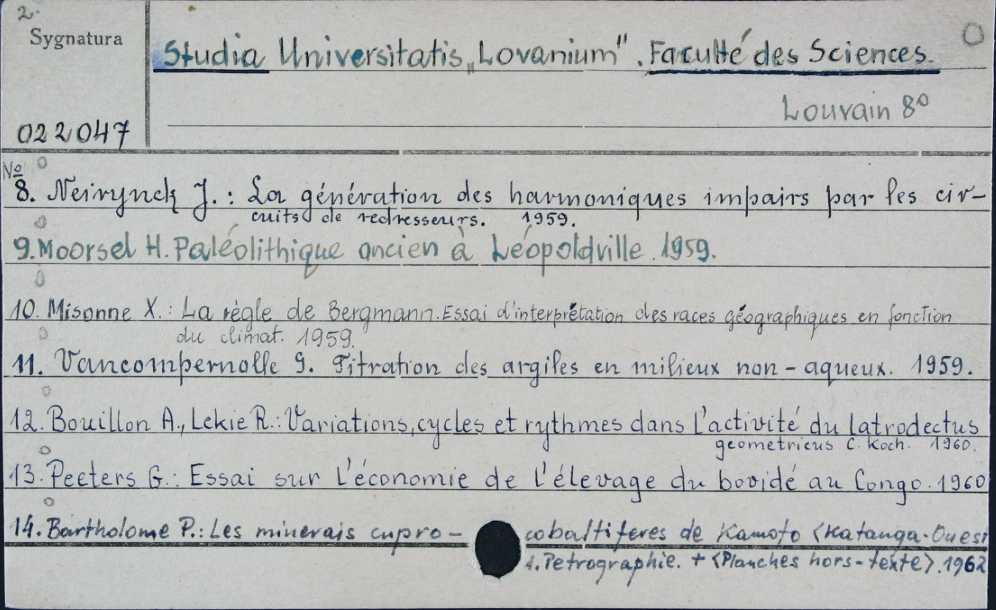 2.
Sygnatura
Studia Universitatis „Lovanium". Faculté des Sciences.
Louvain 8°
022047
№
8. Neirynck J.: La génération des harmoniques impairs par les cir-
cuits de redresseurs. 1959.
9. Moorsel H. Paléolithique ancien à Léopoldville. 1959.
10. Misonne X.: La règle de Bergmann. Essai d'interprétation des races géographiques en fonction
du climat. 1959.
11. Vancompernolle G. Titration des argiles en milieux non-aqueux. 1959.
12. Bouillon A., Lekie R.: Variations, cycles et rythmes dans l'activité du latrodectus
geometricus C. Koch. 1960.
13. Peeters G.: Essai sur l'économie de l'élevage du bovidé au Congo. 1960
14. Bartholome P.: Les minerais cupro- cobaltiferes de Kamoto (Katanga-Ouest
1. Petrographie. + (Planches hors-texte). 1962